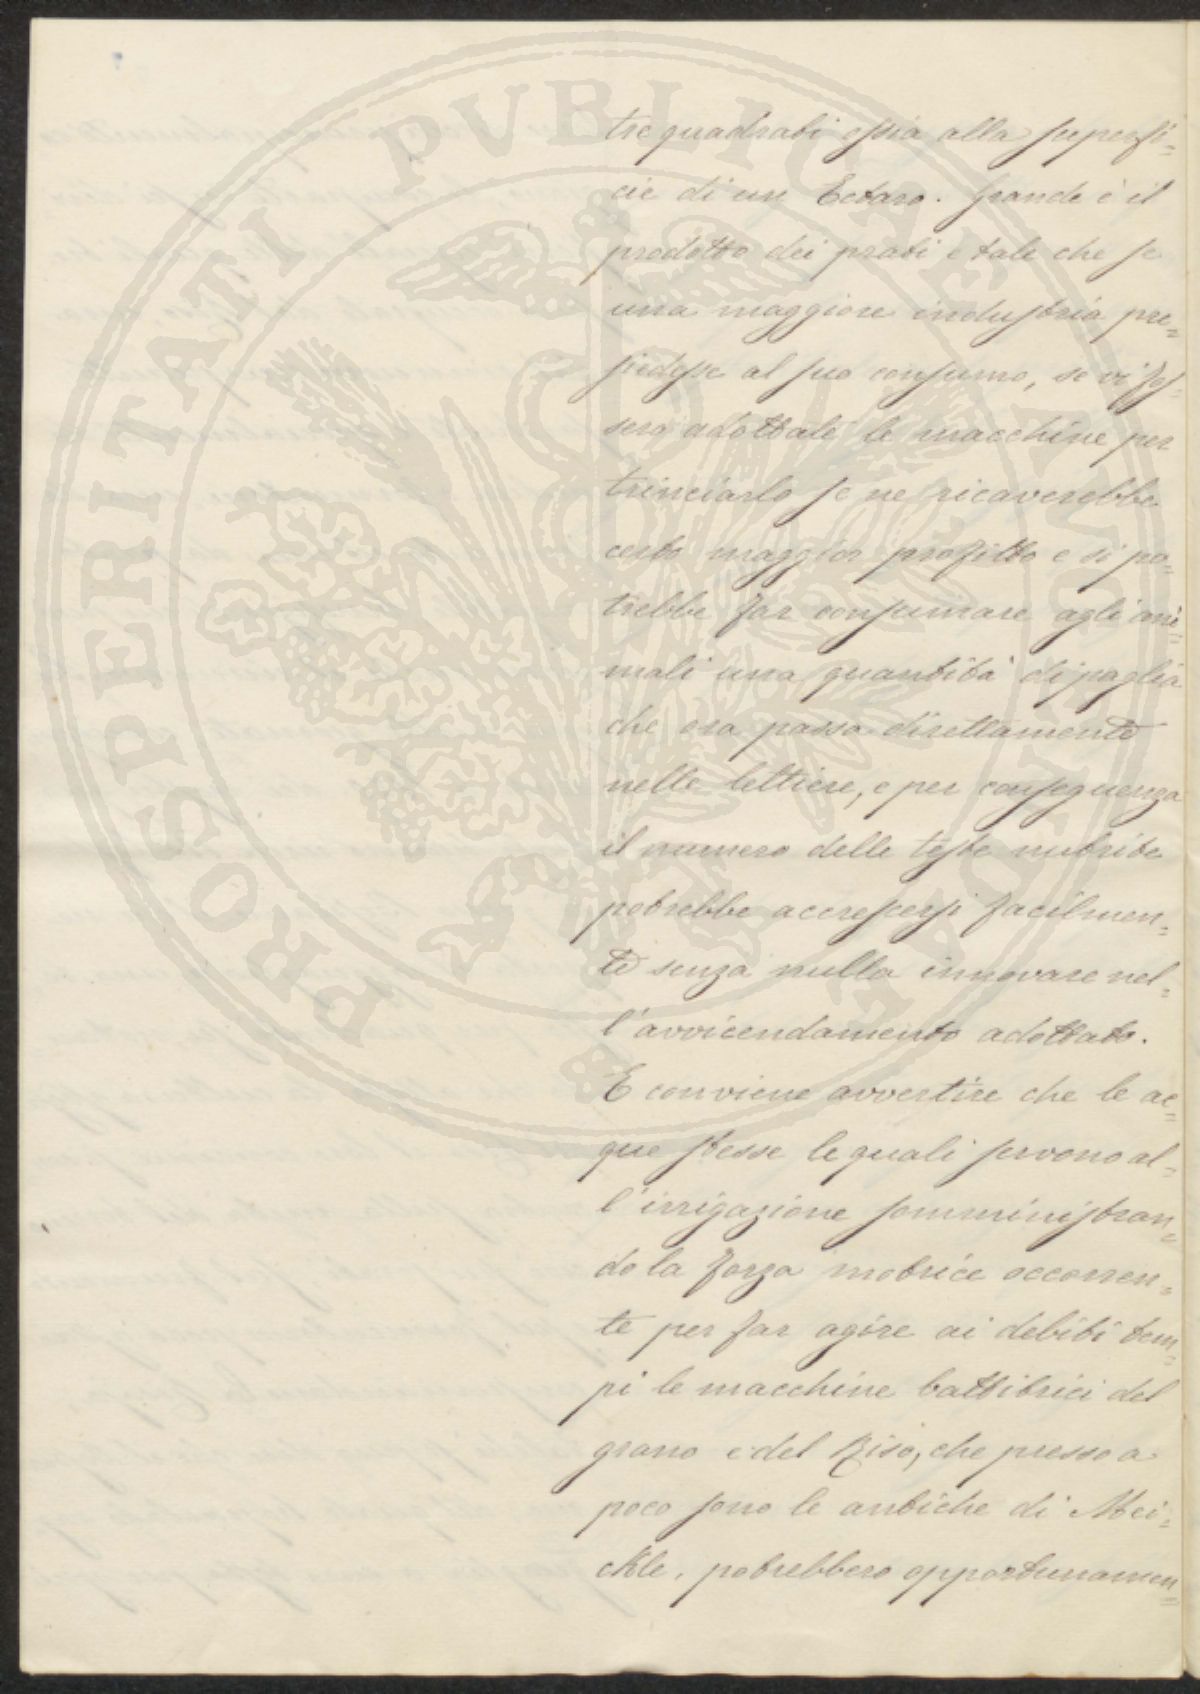 tre quadrati ossia alla superfi=
cie di un Ectaro. Grande è il
prodotto dei prati e tale che se
una maggiore industria pre=
siedesse al suo consumo, se vi fos=
sero adottate le macchine per
trinciarlo se ne ricaverebbe
certo maggior profitto e si po=
trebbe far consumare agli ani=
mali una quantità di paglia
che ora passa direttamente
nelle lettiere, e per conseguenza
il numero delle teste nutrite
potrebbe accrescersi facilmen=
te senza nulla innovare nel=
l'avvicendamento adottato.
E conviene avvertire che le ac=
que stesse le quali servono al=
l'irrigazione somministran=
do la forza motrice occorren=
te per far agire ai debiti tem=
pi le macchine battitrici del
grano e del Riso, che presso a
poco sono le antiche di Mei=
ckle, potrebbero opportunamen=
PROSPERITATI PVBLICAE AVGENDAE